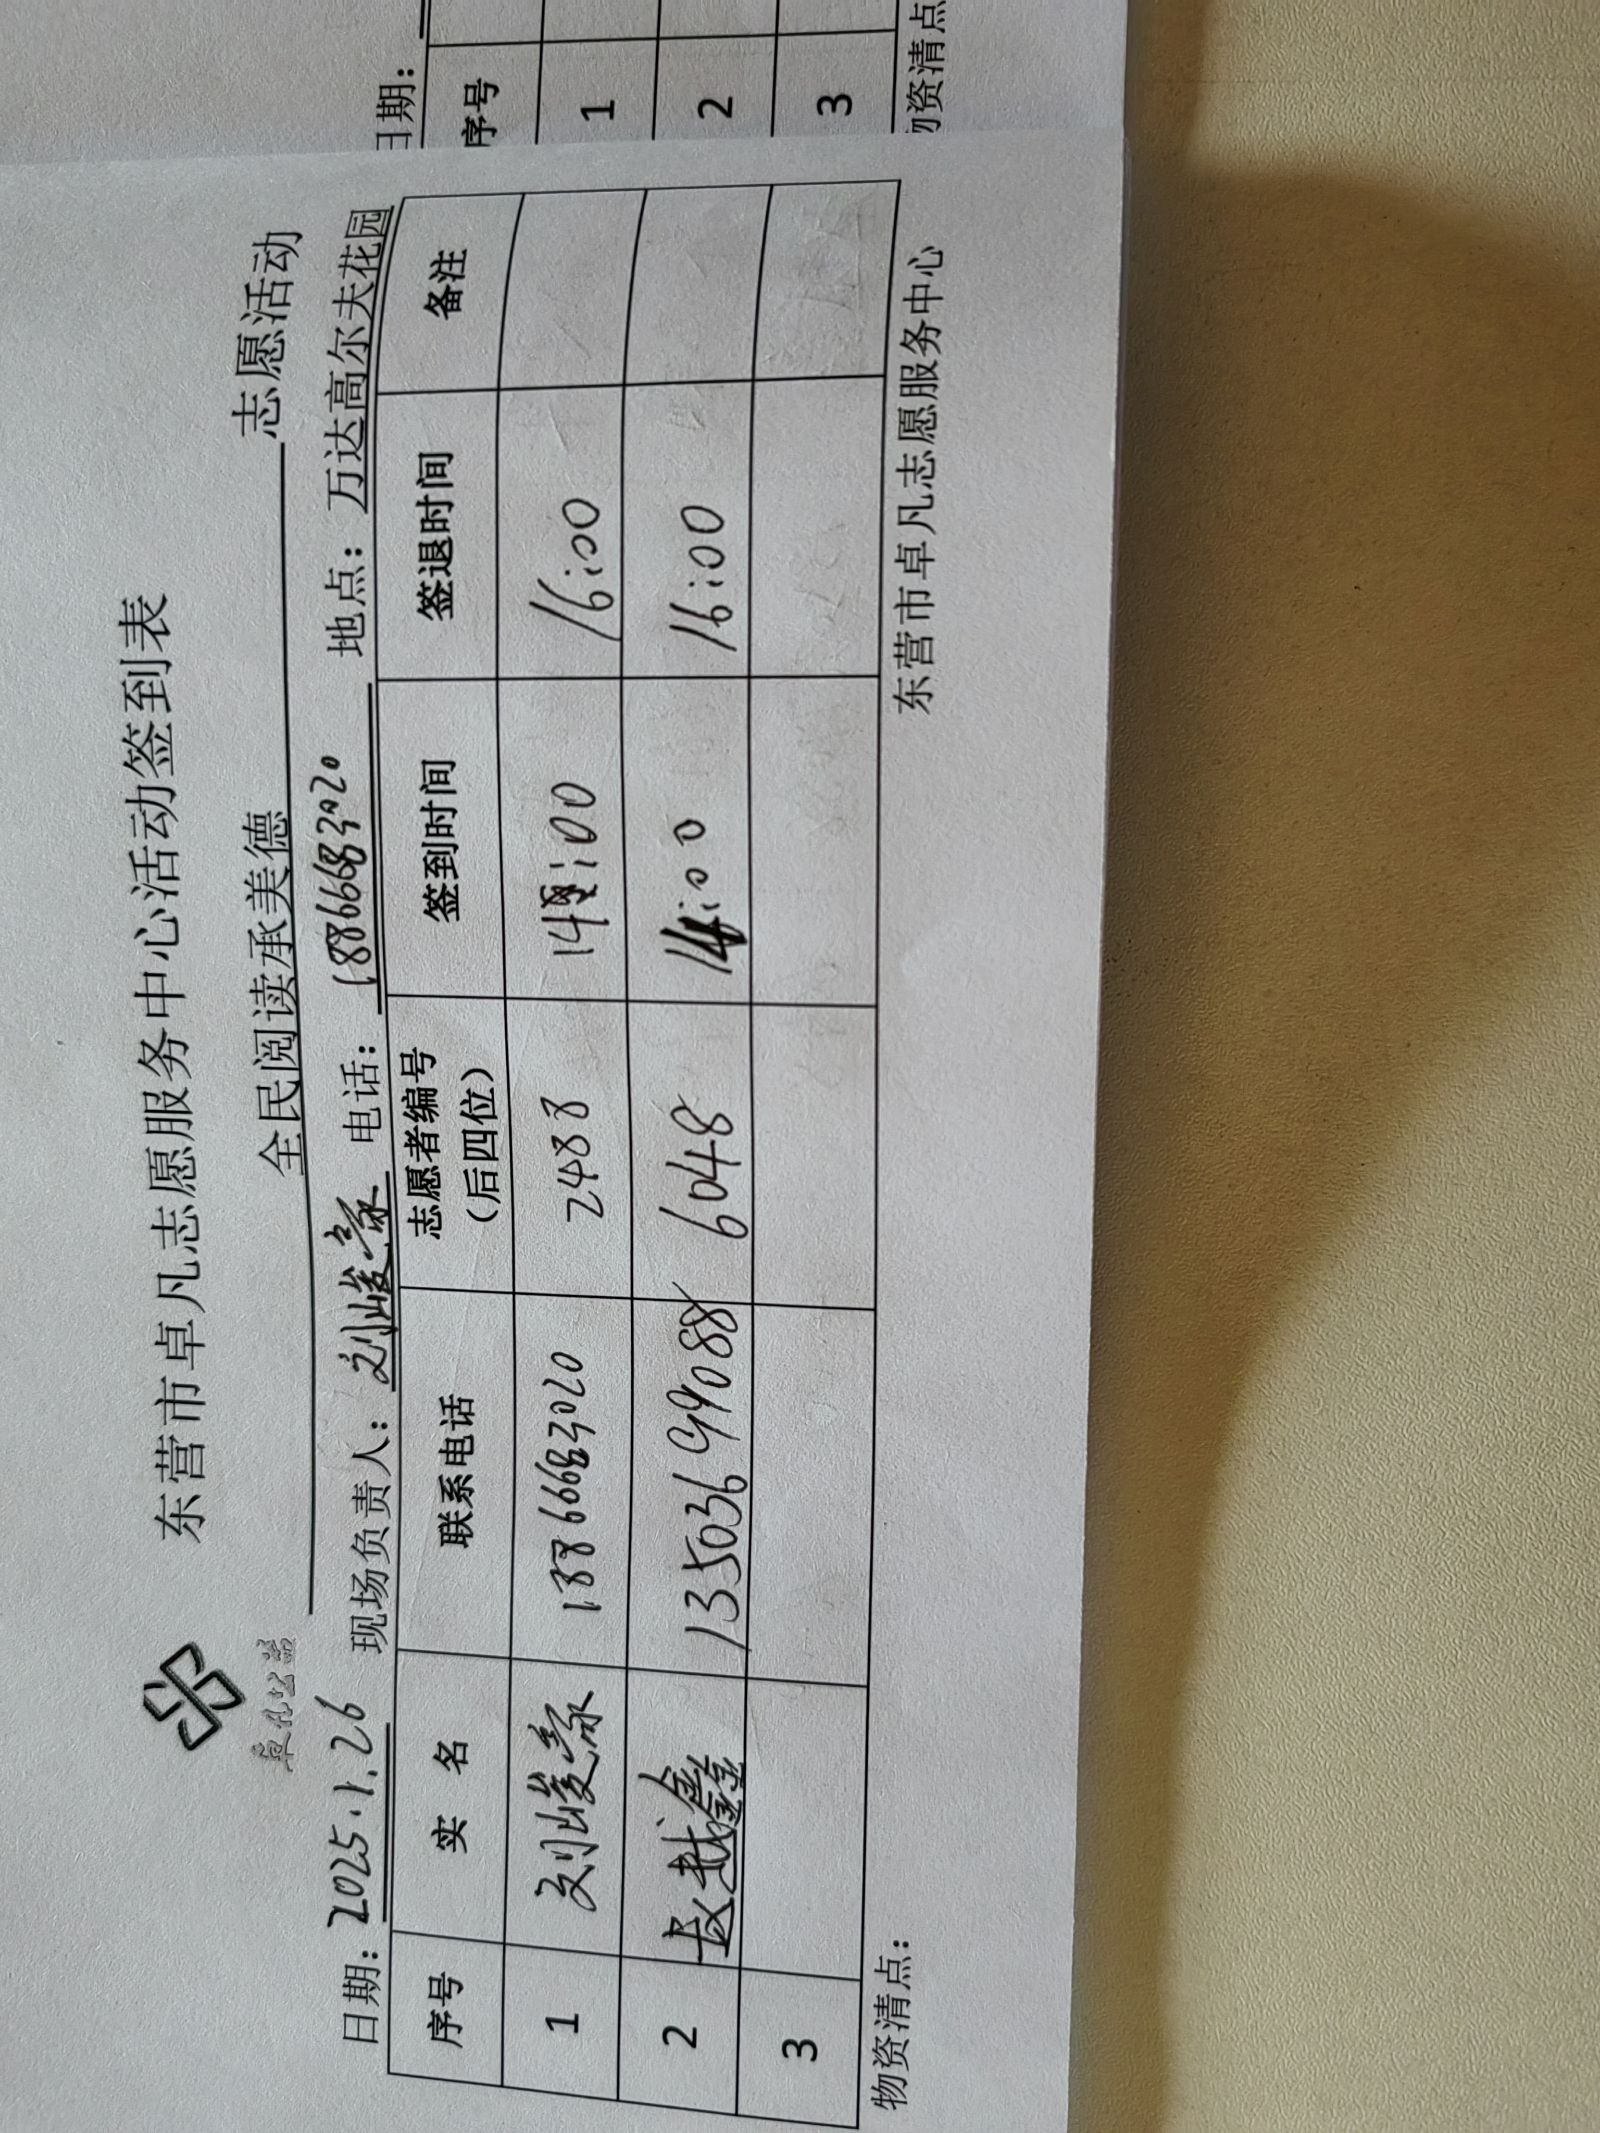 东营市卓凡志愿服务中心活动签到表
卓凡公益
全民阅读承美德 志愿活动
日期：2025.1.26 现场负责人：刘峻豪 电话：18866683020 地点：万达高尔夫花园
序号 实 名 联系电话 志愿者编号（后四位） 签到时间 签退时间 备注
1 刘峻豪 18866683020 2488 14:00 16:00
2 赵越鑫 13503694088 6048 14:00 16:00
3
物资清点： 东营市卓凡志愿服务中心
日期：
序号
1
2
3
物资清点